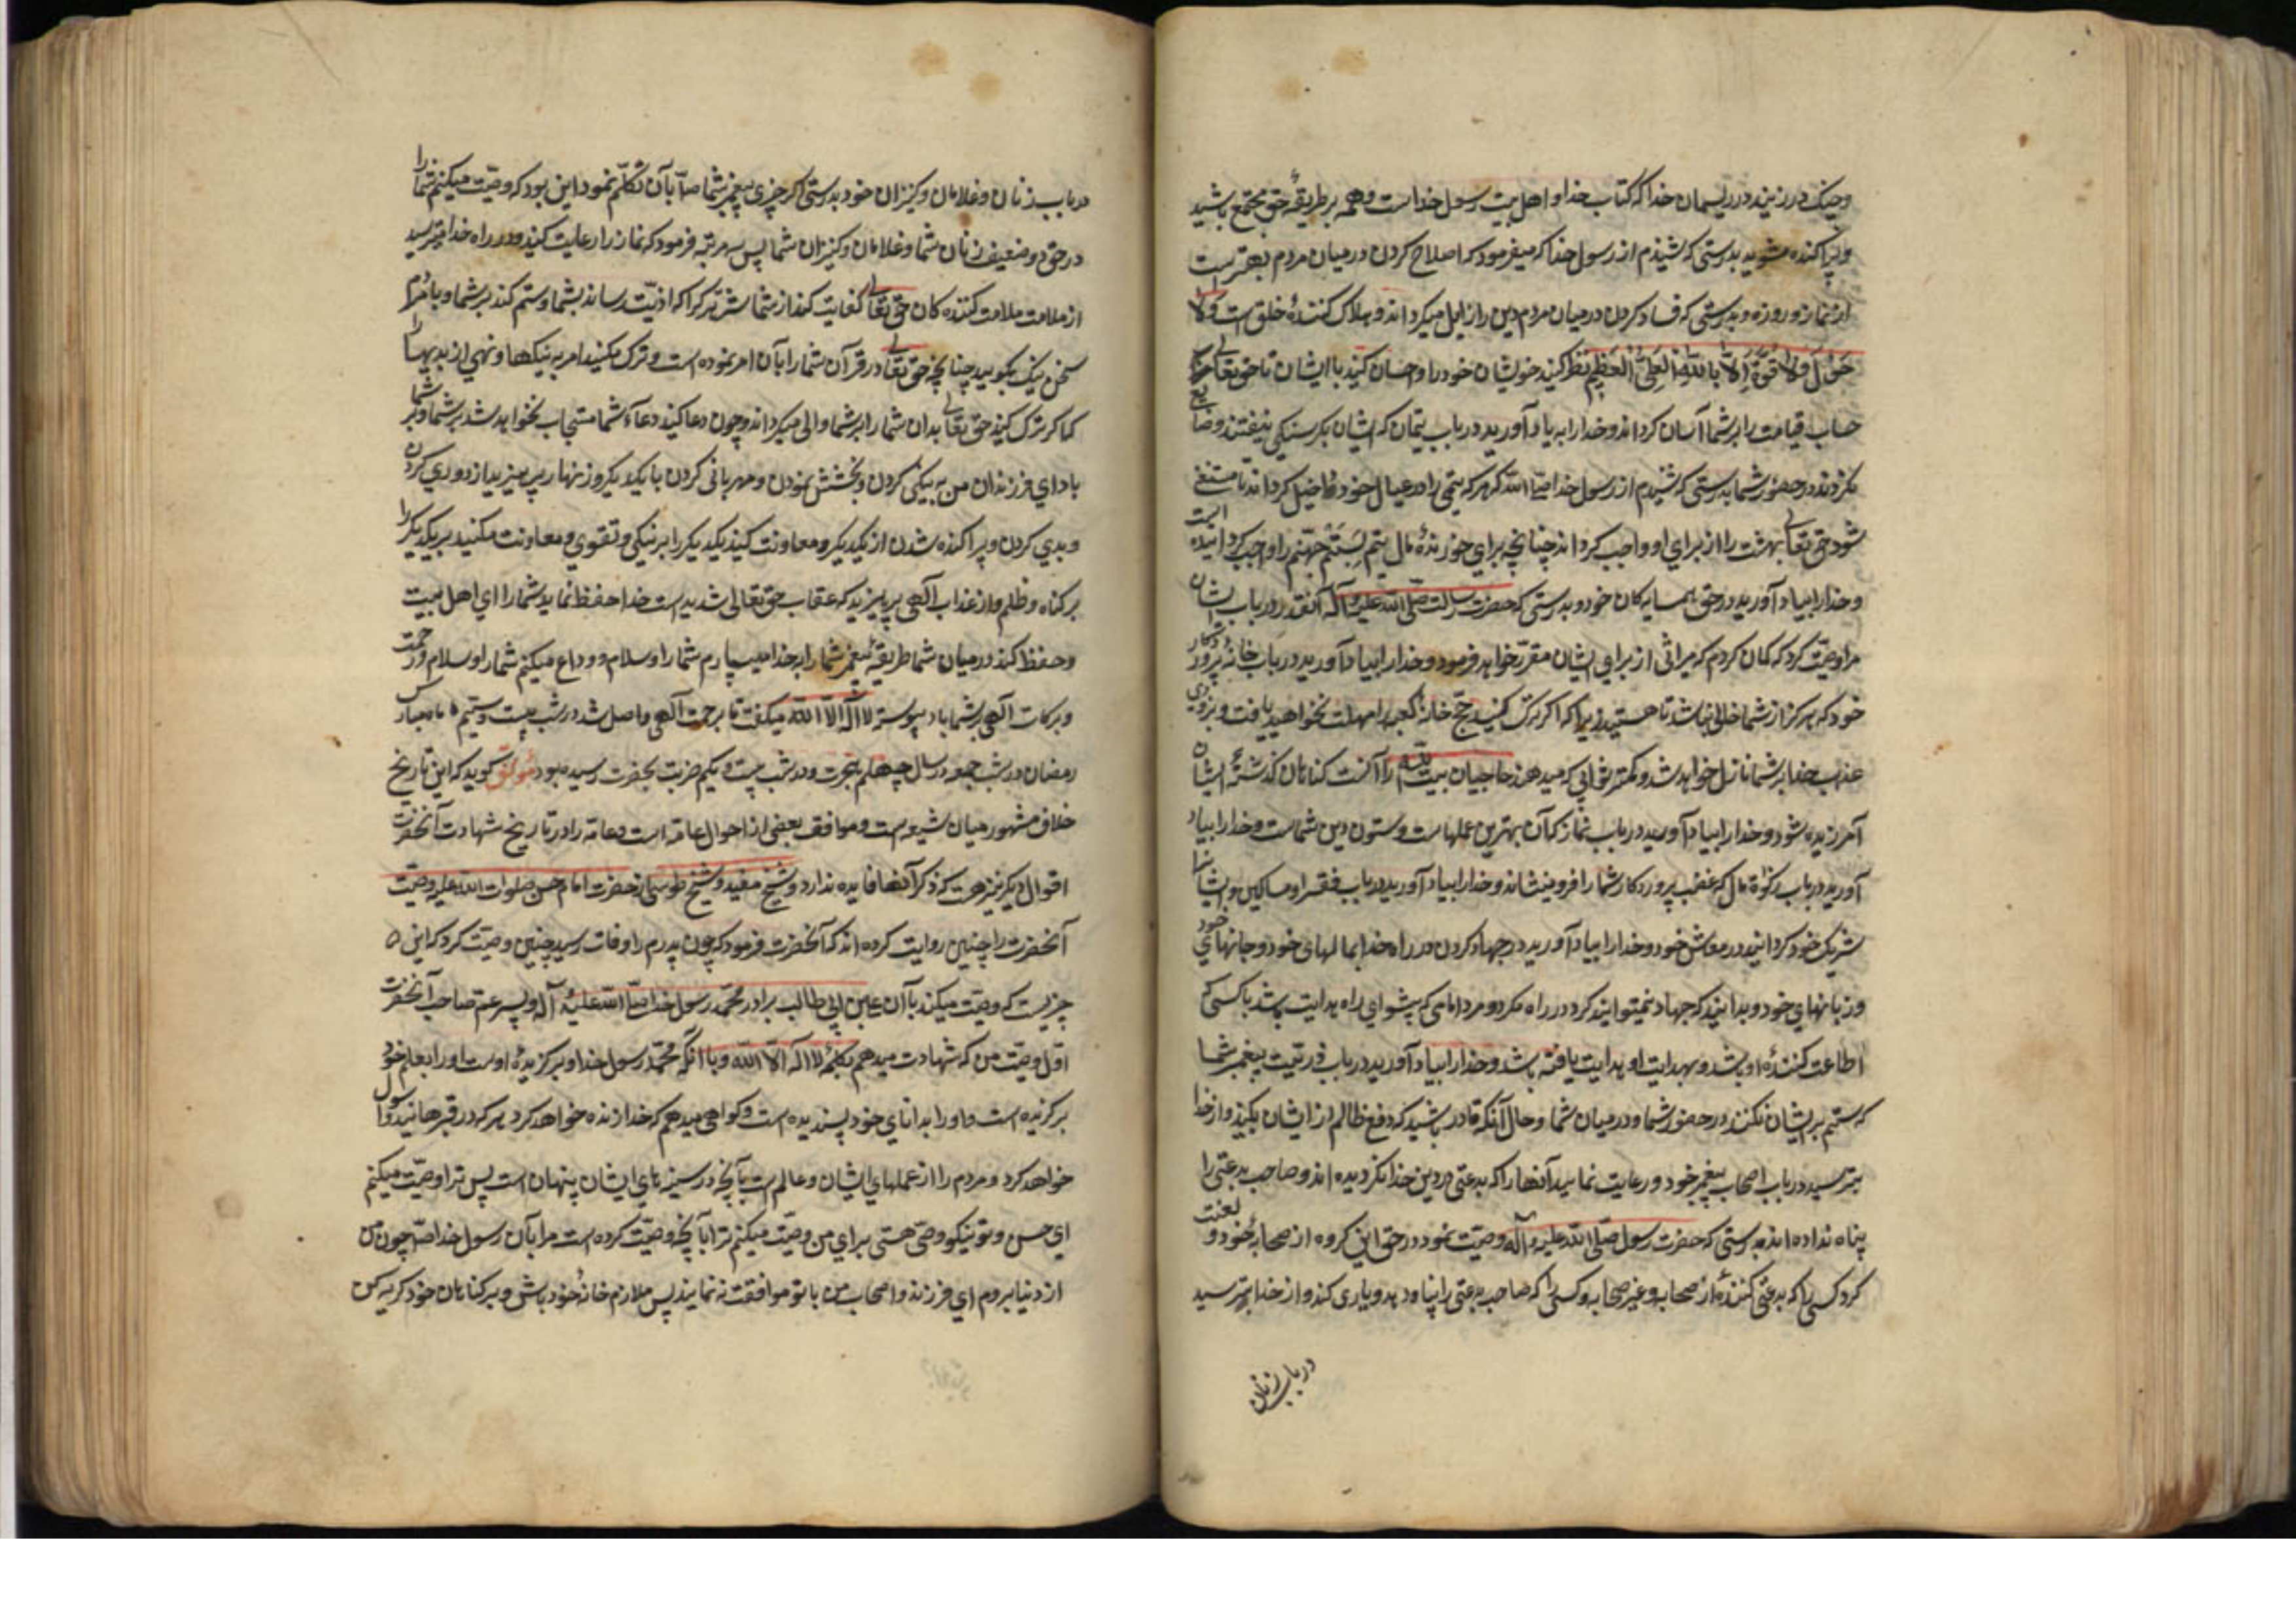 و چنک در زنید در ریسمان خدا که کتاب خدا و اهل بیت رسول خداست و همه بر طریقهٔ حق مجتمع باشید
و پراکنده مشوید بدرستی که شنیدم از رسول خدا که میفرمود که اصلاح کردن در میان مردم بهتر است
از نماز و روزه و بدرستی که فساد کردن در میان مردم دین را زایل میکرداند و هلاک کنندهٔ خلق است وَلا
حَوْلَ وَلا قُوَّةَ اِلّا بِاللّهِ الْعَلِیِّ الْعَظِیمِ نظر کنید خویشان خود را و احسان کنید با ایشان تا حق تعالی
حساب قیامت را بر شما آسان کرداند و خدا را به یاد آورید در باب یتیمان که ایشان بکرسنکی نیفتند و ضایع
نکردند در حضور شما بدرستی که شنیدم از رسول خدا صلی الله که هر که یتیمی را در عیال خود داخل کرداند تا مستغنی
شود حق تعالی بهشت را از برای او واجب کرداند چنانچه برای خورندهٔ مال یتیم البته جهنم را واجب کردانیده
و خدا را بیاد آورید در حق همسایه کان خود و بدرستی که حضرت رسالت صلّی الله علیه و آله آنقدر در باب ایشان
مرا وصیّت کرد که کمان کردم که میراثی از برای ایشان مقرّر خواهد فرمود و خدا را بیاد آورید در باب خانهٔ پروردکار
خود که هرکز از شما خالی نباشد تا هستید زیرا که اکر ترک کنید حجّ خانهٔ کعبه را مهلت نخواهید یافت و بزودی
عذاب خدا بر شما نازل خواهد شد و کمتر ثوابی که میدهند حاجیان بیت الله را آنست کناهان کذشتهٔ ایشان
آمرزیده شود و خدا را بیاد آورید در باب نماز که آن بهترین عملهاست و ستون دین شماست و خدا را بیاد
آورید در باب زکوٰة مال که غضب پروردکار شما را فرو مینشاند و خدا را بیاد آورید در باب فقرا و مساکین و ایشانرا
شریک خود کردانید در معاش خود و خدا را بیاد آورید در جهاد کردن در راه خدا بمالهای خود و جانهای خود
و زبانهای خود و بدانید که جهاد نمیتوانند کرد در راه مکر دو مرد امامی که پیشوای راه هدایت باشد یا کسی که
اطاعت کنندهٔ او باشد و بهدایت او هدایت یافته باشد و خدا را بیاد آورید در باب ذریّت پیغمبر شما
که ستم بر ایشان نکنند در حضور شما و در میان شما و حال آنکه قادر باشید که دفع ظالم از ایشان بکنید و از خدا
بترسید در باب اصحاب پیغمبر خود و رعایت نمایید آنها را که بدعتی در دین خدا نکردیده اند و صاحب بدعتی را
پناه نداده اند بدرستی که حضرت رسول صلّی الله علیه و آله وصیّت نمود در حق این کروه از صحابهٔ خود و لعنت
کرد کسی را که بدعتی کنندهٔ از صحابه و غیر صحابه و کسی را که صاحب بدعتی را پناه دهد و یاری کند و از خدا بترسید
در باب زنان
در باب زنان و غلامان و کنیزان خود بدرستی که آخر چیزی پیغمبر شما صلّ بآن تکلّم نمود این بود که وصیّت میکنم شما را
در حق دو ضعیف زنان شما و غلامان و کنیزان شما پس سه مرتبه فرمود که نماز را رعایت کنید و در راه خدا مترسید
از ملامت ملامت کننده کان حق تعالی کفایت کند از شما شرّ هر کرا که اذیّت رساند بشما و ستم کند بر شما و با مردم
سخن نیک بکویید چنانچه حق تعالی در قرآن شما را بآن امر نموده است و ترک مکنید امر به نیکها و نهی از بدیها را
که اکر ترک کنید حق تعالی بدان شما را بر شما والی میکرداند و چون دعا کنید دعاء شما مستجاب نخواهد شد بر شما و بر شما
باد ای فرزندان من به نیکی کردن و بخشش نمودن و مهربانی کردن با یکدیکر و زنهار بپرهیزید از دوری کردن
و بدی کردن و پراکنده شدن از یکدیکر و معاونت کنید یکدیکر را بر نیکی و تقوی و معاونت مکنید بر یکدیکر را
بر کناه و ظلم و از عذاب آلهی بپرهیزید که عقاب حق تعالی شدید است خدا حفظ نماید شما را ای اهل بیت
و حفظ کند در میان شما طریقهٔ پیغمبر شما را بخدا میسپارم شما را و سلام و وداع میکنم شما را و سلام و رحمت
و برکات آلهی بر شما باد پیوسته لا اله الا الله میکفت تا برحمت آلهی واصل شد در شب بیست و سیّم ماه مبارک
رمضان در شب جمعه در سال چهلم هجرت و در شب بیست و یکم ضربت بحضرت رسیده بود مؤلّف کوید که این تاریخ
خلاف مشهور میان شیعه است و موافق بعضی از احوال عامّه است و عامّه را در تاریخ شهادت آنحضرت
اقوال دیکر نیز هست که ذکر آنها فایده ندارد و شیخ مفید و شیخ طوسی از حضرت امام حسن صلوات الله علیه وصیّت
آنحضرت را چنین روایت کرده اند که آنحضرت فرمود که چون پدرم را وفات رسید چنین وصیّت کرد که این
چیزیست که وصیّت میکند بآن علی بن ابی طالب برادر محمّد رسول خدا صلّی الله علیه و آله و پسر عم و صاحب آنحضرت
اوّل وصیّت من که شهادت میدهم بکلمهٔ لا اله الّا الله و با آنکه محمّد رسول خدا و برکزیدهٔ اوست او را بعلم خود
برکزیده است و او را بدانای خود پسندیده است و کواهی میدهم که خدا زنده خواهد کرد هر که در قبرهایند و سؤال
خواهد کرد و مردم را از عملهای ایشان و عالم است بآنچه در سینهای ایشان پنهان است پس ترا وصیّت میکنم
ای حسن و تو نیکو وصی هستی برای من وصیّت میکنم ترا بآنچه وصیّت کرده است مرا بآن رسول خدا صلّ چون من
از دنیا بروم ای فرزند و اصحاب من با تو موافقت نه نمایند پس ملازم خانهٔ خود باش و بر کناهان خود کریه کن